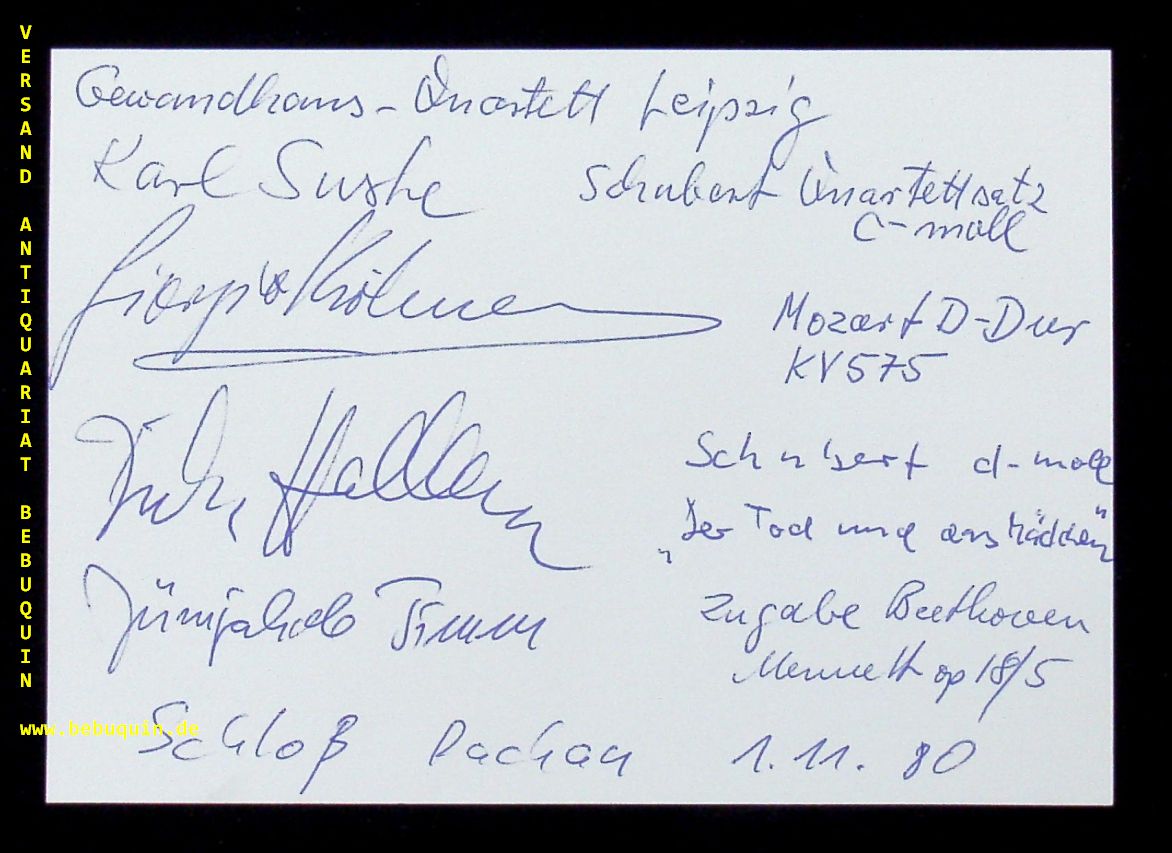 VERSAND ANTIQUARIAT BEBUQUIN
www.bebuquin.de
Gewandhaus-Quartett Leipzig
Karl Suske
Schubert Quartettsatz
c-moll
Giorgio Kröhner
Mozart D-Dur
KV 575
Hallmann
Schubert d-moll
„Der Tod und das Mädchen"
Jürnjakob Timm
Zugabe Beethoven
Menuett op 18/5
Schloß Dachau 1.11.80